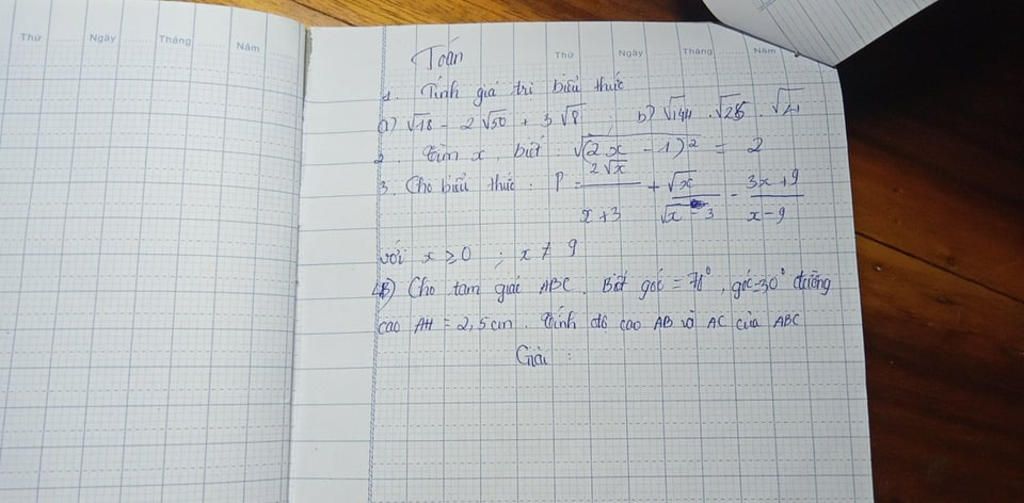 Thứ Ngày Tháng Năm
Thứ Ngày Tháng Năm
Toán
1. Tính giá trị biểu thức
a) √18 - 2√50 + 3√8 ; b) √144 . √25 . √4
2. Tìm x, biết √(2x - 1)² = 2
3. Cho biểu thức : P = 2√x / x+3 + √x / √x - 3 - 3x+9 / x-9
với x ≥ 0 ; x ≠ 9
Cho tam giác ABC. Biết góc = 70°, góc=30° đường
cao AH = 2,5cm. Tính độ cao AB và AC của ABC
Giải :